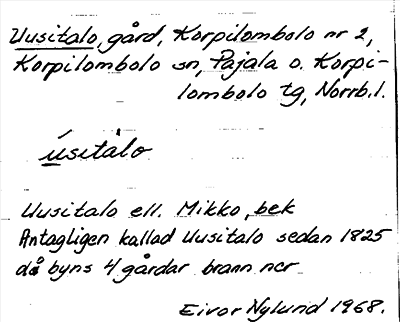 Uusitalo, gård, Korpilombolo nr 2,
Korpilombolo sn, Pajala o. Korpi-
lombolo tg, Norrb.l.
úsitàlo
Uusitalo ell. Mikko, bek
Antagligen kallad Uusitalo sedan 1825
då byns 4 gårdar brann ner
Eivor Nylund 1968.